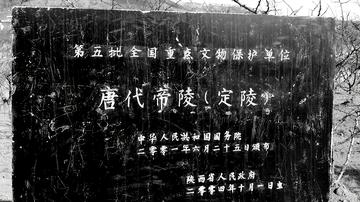 第五批全国重点文物保护单位
唐代帝陵（定陵）
中华人民共和国国务院
二〇〇一年六月二十五日颁布
陕西省人民政府
二〇〇四年十月一日立